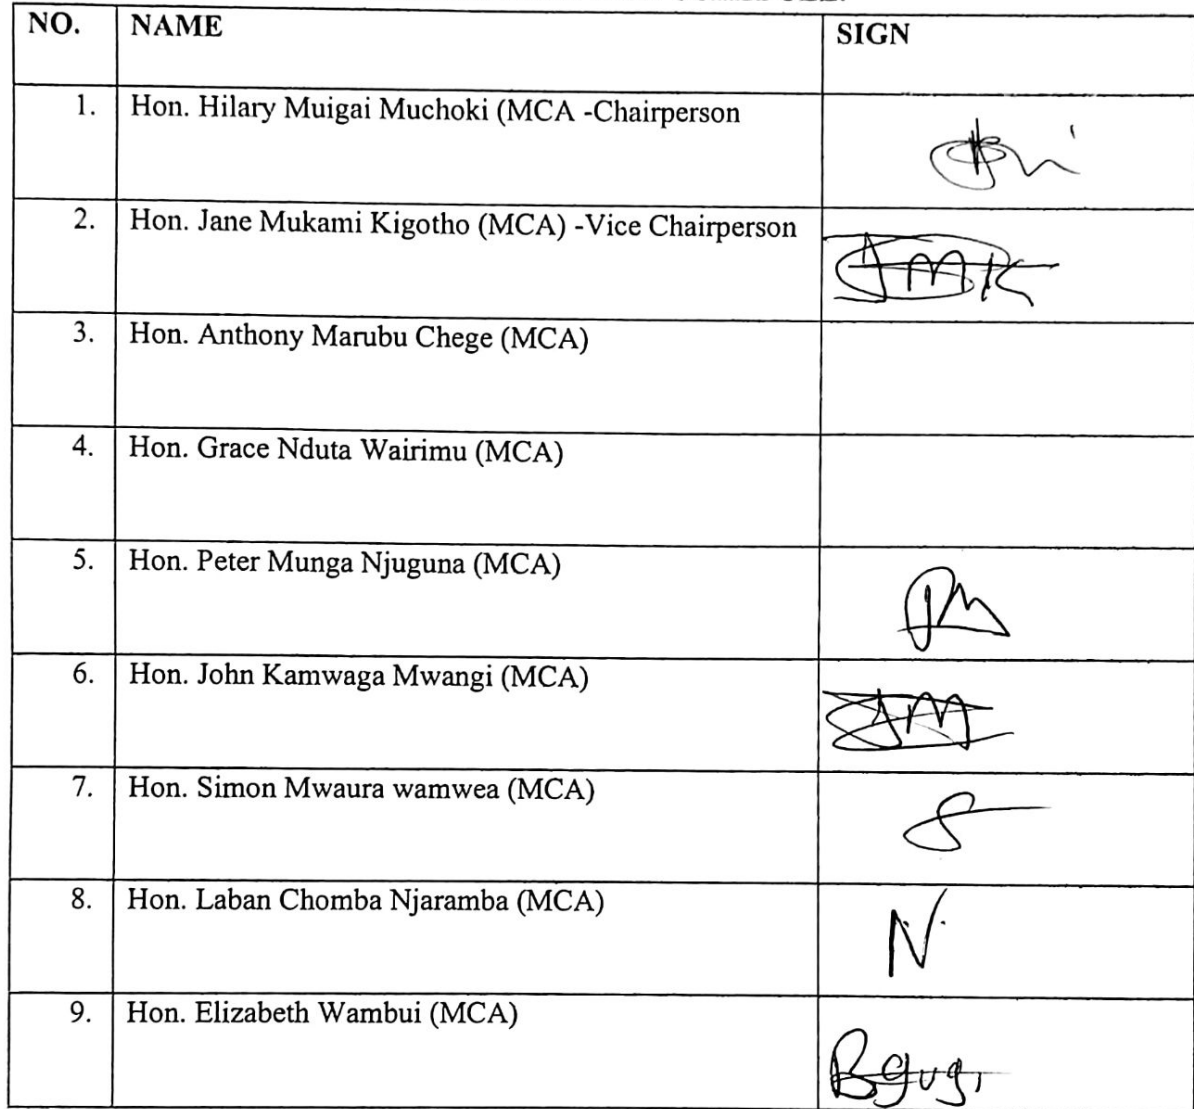 NO. NAME SIGN
1. Hon. Hilary Muigai Muchoki (MCA -Chairperson
2. Hon. Jane Mukami Kigotho (MCA) -Vice Chairperson JMK
3. Hon. Anthony Marubu Chege (MCA)
4. Hon. Grace Nduta Wairimu (MCA)
5. Hon. Peter Munga Njuguna (MCA) PM
6. Hon. John Kamwaga Mwangi (MCA) JM
7. Hon. Simon Mwaura wamwea (MCA)
8. Hon. Laban Chomba Njaramba (MCA) N.
9. Hon. Elizabeth Wambui (MCA)